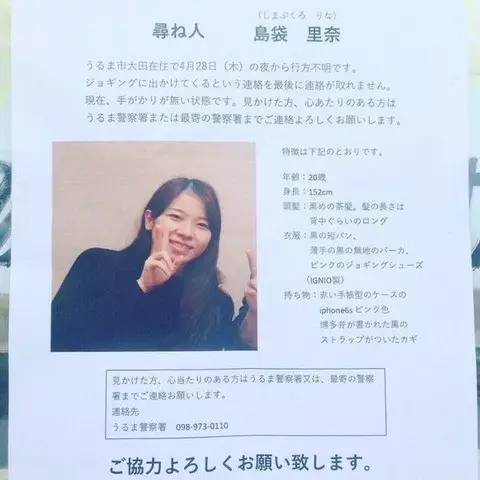 (しまぶくろ りな)
尋ね人 島袋 里奈
うるま市大田在住で4月28日(木)の夜から行方不明です。
ジョギングに出かけてくるという連絡を最後に連絡が取れません。
現在、手がかりが無い状態です。見かけた方、心あたりのある方は
うるま警察署または最寄の警察署までご連絡よろしくお願いします。
特徴は下記のとおりです。
年齢:20歳
身長:152cm
頭髪:黒めの茶髪。髪の長さは
背中ぐらいのロング
衣服:黒の短パン、
薄手の黒の無地のパーカ、
ピンクのジョギングシューズ
(IGNIO製)
持ち物:赤い手帳型のケースの
iphone6s ピンク色
博多弁が書かれた黒の
ストラップがついたカギ
見かけた方、心当たりのある方はうるま警察署又は、最寄の警察
署までご連絡お願いします。
連絡先
うるま警察署 098-973-0110
ご協力よろしくお願い致します。